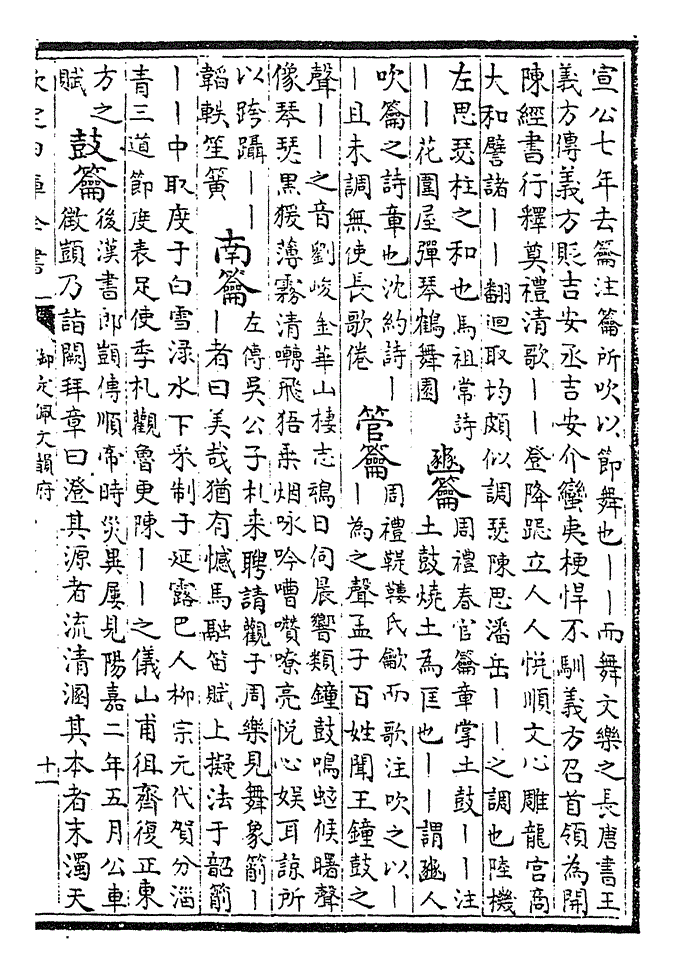 宣公七年去籥注籥所吹以節舞也｜｜而舞文樂之長唐書王
義方傳義方貶吉安丞吉安介蠻夷梗悍不馴義方召首領為開
陳經書行釋奠禮清歌｜｜登降跽立人人悅順文心雕龍宮商
大和譬諸｜｜翻迴取均頗似調瑟陳思潘岳｜｜之調也陸機
左思瑟柱之和也馬祖常詩
｜｜花圍屋彈琴鶴舞園
豳籥
周禮春官籥章掌土鼓｜｜注
土鼓燒土為匡也｜｜謂豳人
吹籥之詩章也沈約詩｜
｜且未調無使長歌倦
管籥
周禮鞮鞻氏龡而歌注吹之以｜
｜為之聲孟子百姓聞王鐘鼓之
聲｜｜之音劉峻金華山棲志鳴日伺晨響類鐘鼓鳴蚿候曙聲
像琴瑟黑猨薄霧清囀飛猱乘烟咏吟嘈囋嘹亮悅心娛耳諒所
以跨躡｜｜
韜軼笙簧
南籥
左傳吳公子札来聘請觀于周樂見舞象箾｜
｜者曰美哉猶有憾馬融笛賦上擬法于韶箾
｜｜中取度于白雪淥水下采制于延露巴人柳宗元代賀分淄
青三道節度表足使季札觀魯更陳｜｜之儀山甫徂齊復正東
方之
賦
鼓籥
後漢書郎顗傳順帝時災異屢見陽嘉二年五月公車
徵顗乃詣闕拜章曰澄其源者流清溷其本者末濁天
欽定四庫全書
御定佩文韻府
十一